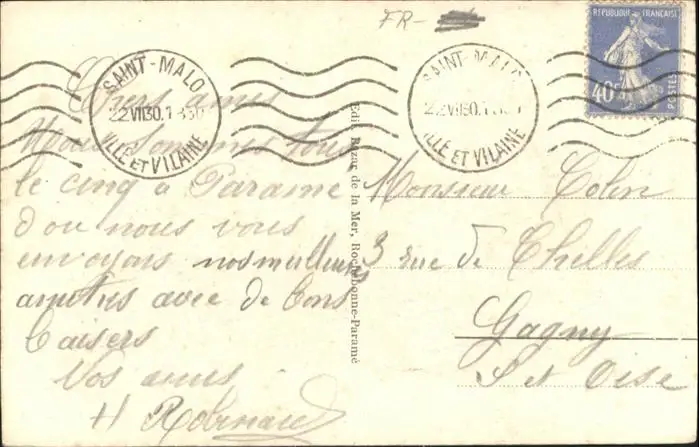 FR-
RÉPUBLIQUE FRANÇAISE
40c
POSTES
SAINT-MALO
22 VII 30.1830
ILLE ET VILAINE
SAINT-MALO
22 VII 30.1830
ILLE ET VILAINE
Chers amis
Nous sommes tous
le cinq à Parame
d'ou nous vous
envoyons nos meilleurs
amities avec de bons
baisers
Vos amis
H Robinard
Edit. Bazar de la Mer, Rochebonne-Paramé
Monsieur Colin
3 rue de Chelles
Gagny
S et Oise